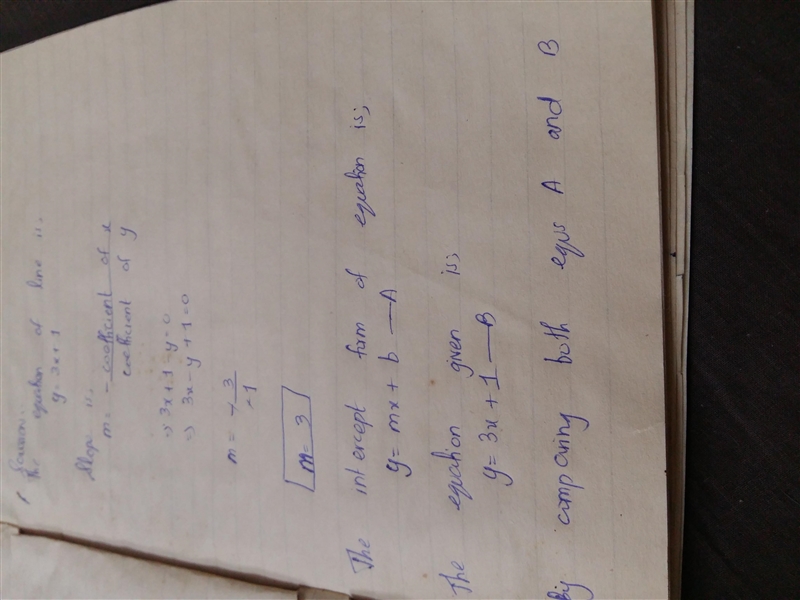 Solution:
The equation of line is:
y = 3x + 1
Slope is:
m = - coefficient of x
coefficient of y
⇒ 3x + 1 - y = 0
⇒ 3x - y + 1 = 0
m = - 3
-1
m = 3
The intercept form of equation is;
y = mx + b — A
The equation given is;
y = 3x + 1 — B
By comparing both eqns A and B